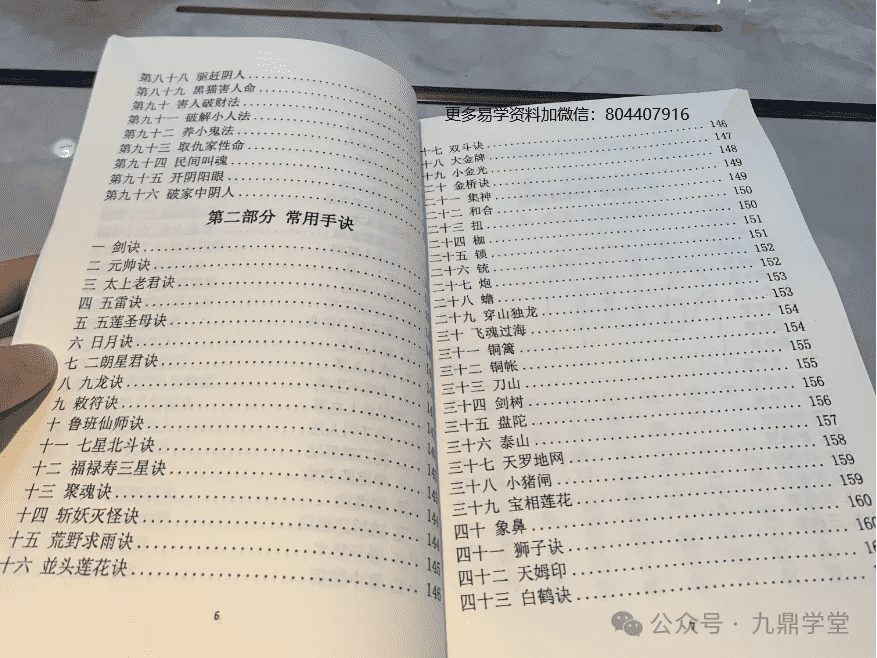 第八十八 驱赶阴人
第八十九 黑猫害人命
第九十 害人破财法
第九十一 破解小人法
第九十二 养小鬼法
第九十三 取仇家性命
第九十四 民间叫魂
第九十五 开阴阳眼
第九十六 破家中阴人
第二部分 常用手诀
一 剑诀
二 元帅诀
三 太上老君诀
四 五雷诀
五 五莲圣母诀
六 日月诀
七 二朗星君诀
八 九龙诀
九 敕符诀
十 鲁班仙师诀
十一 七星北斗诀
十二 福禄寿三星诀
十三 聚魂诀
十四 斩妖灭怪诀 144
十五 荒野求雨诀 145
十六 並头莲花诀 146
6
更多易学资料加微信:804407916
146
十七 双斗诀 147
十八 大金牌 148
十九 小金光 149
二十 金桥诀 149
二十一 集神 150
二十二 和合 150
二十三 扭 151
二十四 枷 151
二十五 锁 152
二十六 铳 152
二十七 炮 153
二十八 蟾 153
二十九 穿山独龙 154
三十 飞魂过海 154
三十一 铜篱 155
三十二 铜帐 155
三十三 刀山 156
三十四 剑树 156
三十五 盘陀 157
三十六 泰山 158
三十七 天罗地网 159
三十八 小猪闸 159
三十九 宝相莲花 160
四十 象鼻 160
四十一 狮子诀
四十二 天姆印
四十三 白鹤诀
公众号·九鼎学堂